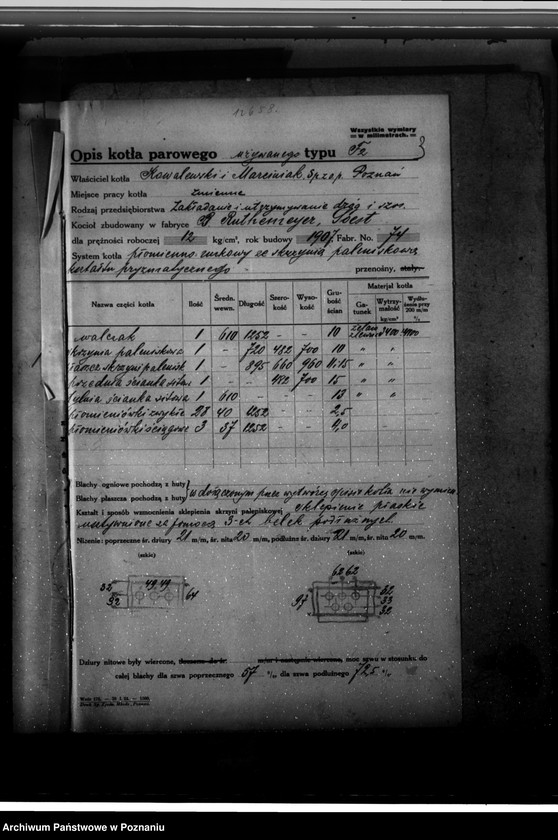 12653.
Wszystkie wymiary
— w milimetrach. —
Opis kotła parowego używanego typu Fe
Właściciel kotła Kowalewski i Marciniak Sp. z o.p. Poznań
Miejsce pracy kotła zmienne
Rodzaj przedsiębiorstwa Zakładanie i utrzymywanie dróg i szos.
Kocioł zbudowany w fabryce B Ruthemeyer, Soest
dla prężności roboczej 12 kg/cm², rok budowy 1907. Fabr. No. 74
System kotła płomienno-rurkowy ze skrzynią paleniskową
kształtu pryzmatycznego przenośny, stały.
Nazwa części kotła Ilość Średn. wewn. Długość Szerokość Wysokość Grubość ścian Materjał kotła
Gatunek Wytrzymałość kg/cm² Wydłużenie przy 200 m/m %
walczak 1 610 1252 - - 10 żelazo zlewne 3400-4100
skrzynia palenisko 1 720 482 700 10 " "
płaszcz skrzyni palenisk 1 895 660 960 11 i 15 " "
przednia ścianka sitowa 1 482 700 15 " "
tylnia ścianka sitowa 1 610 - - - 13 " "
płomieniówki zwykłe 28 40 1252 2,5
płomieniówki ściągowe 3 37 1252 4,0
Blachy ogniowe pochodzą z huty
Blachy płaszcza pochodzą z huty w dołączonym przez wytwórcę opisie kotła nie wymien.
Kształt i sposób wzmocnienia sklepienia skrzyni paleniskowej sklepienie płaskie
usztywnione za pomocą 3-ch belek podłużnych
Nitienie: poprzeczne śr. dziury 21 m/m, śr. nita 20 m/m, podłużne śr. dziury 21 m/m, śr. nitu 20 m/m.
(szkic) (szkic)
49 49 62 62
32 92 64 97 32 33 32
Dziury nitowe były wiercone, moc szwu w stosunku do
całej blachy dla szwa poprzecznego 57 % dla szwa podłużnego 72,5 %
Archiwum Państwowe w Poznaniu